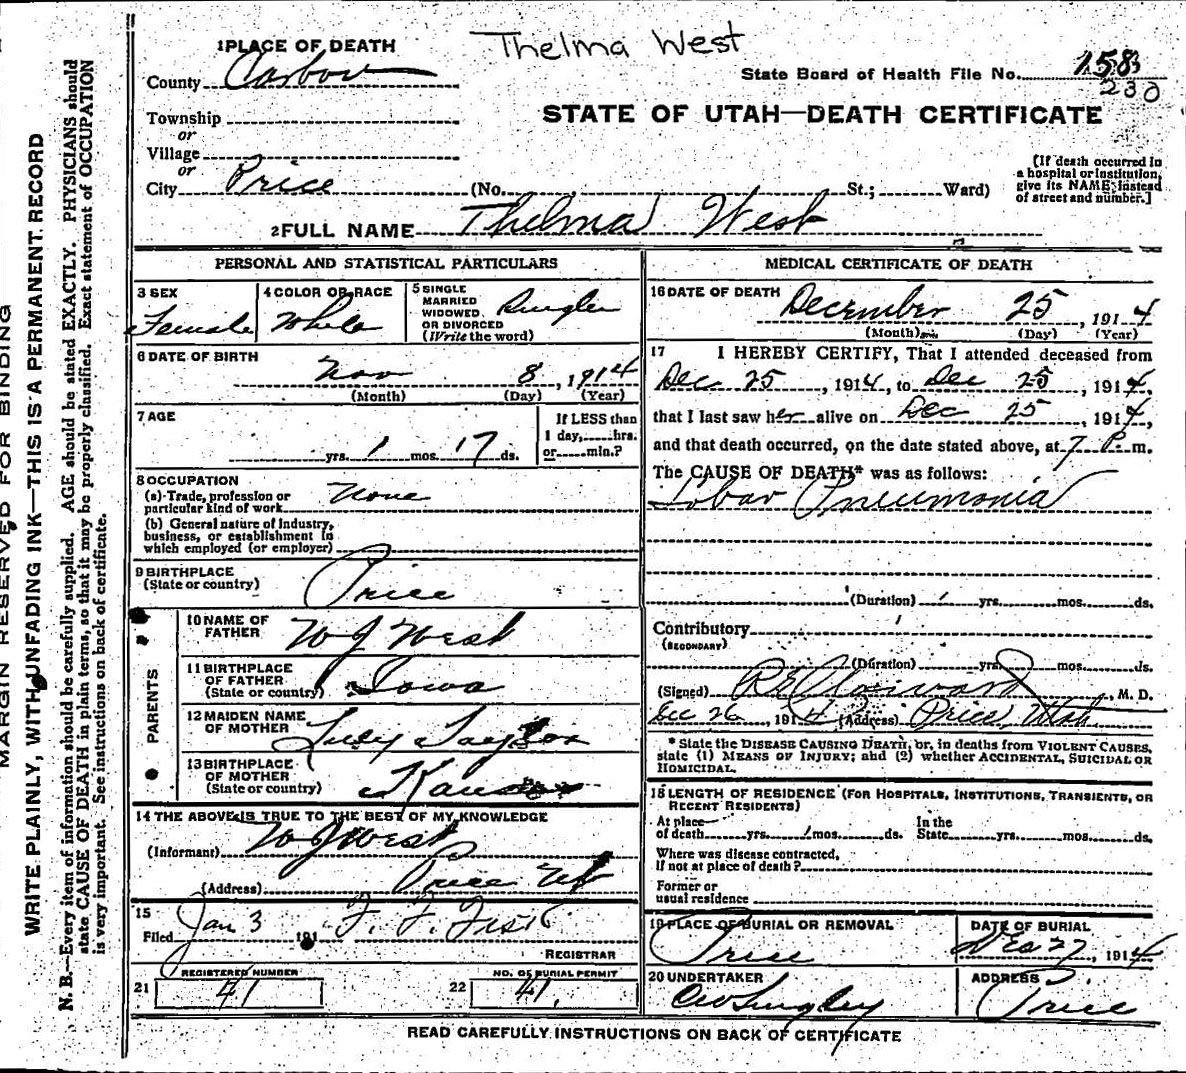 Thelma West
1 PLACE OF DEATH
County Carbon
State Board of Health File No. 158
230
STATE OF UTAH—DEATH CERTIFICATE
Township
or
Village
or
City Price (No. , St.; Ward)
[If death occurred in
a hospital or institution,
give its NAME instead
of street and number.]
2 FULL NAME Thelma West
PERSONAL AND STATISTICAL PARTICULARS
3 SEX
Female
4 COLOR OR RACE
White
5 SINGLE
MARRIED
WIDOWED
OR DIVORCED
(Write the word)
Single
6 DATE OF BIRTH
Nov 8, 1914
(Month) (Day) (Year)
7 AGE
yrs. 1 mos. 17 ds.
If LESS than
1 day, hrs.
or min.?
8 OCCUPATION
(a) Trade, profession or
particular kind of work None
(b) General nature of Industry,
business, or establishment in
which employed (or employer)
9 BIRTHPLACE
(State or country) Price
PARENTS
10 NAME OF
FATHER W J West
11 BIRTHPLACE
OF FATHER
(State or country) Iowa
12 MAIDEN NAME
OF MOTHER Lucy Taylor
13 BIRTHPLACE
OF MOTHER
(State or country) Kansas
14 THE ABOVE IS TRUE TO THE BEST OF MY KNOWLEDGE
(Informant) W J West
(Address) Price Ut
15
Filed Jan 3 191 F. F. Fisk
REGISTRAR
REGISTERED NUMBER
21 41
NO. OF BURIAL PERMIT
22 41.
MEDICAL CERTIFICATE OF DEATH
16 DATE OF DEATH
December 25, 1914
(Month) (Day) (Year)
17 I HEREBY CERTIFY, That I attended deceased from
Dec 25, 1914, to Dec 25, 1914,
that I last saw her alive on Dec 25, 1914,
and that death occurred, on the date stated above, at 7 P. m.
The CAUSE OF DEATH* was as follows:
Lobar Pneumonia
(Duration) yrs. mos. ds.
Contributory
(SECONDARY)
(Duration) yrs. mos. ds.
(Signed) , M. D.
Dec 26, 1914 (Address) Price, Utah
* State the DISEASE CAUSING DEATH, or, in deaths from VIOLENT CAUSES,
state (1) MEANS OF INJURY; and (2) whether ACCIDENTAL, SUICIDAL OR
HOMICIDAL.
18 LENGTH OF RESIDENCE (FOR HOSPITALS, INSTITUTIONS, TRANSIENTS, OR
RECENT RESIDENTS)
At place In the
of death yrs. mos. ds. State yrs. mos. ds.
Where was disease contracted,
if not at place of death?
Former or
usual residence
19 PLACE OF BURIAL OR REMOVAL
Price
DATE OF BURIAL
Dec 27, 1914
20 UNDERTAKER
ADDRESS
Price
READ CAREFULLY INSTRUCTIONS ON BACK OF CERTIFICATE
MARGIN RESERVED FOR BINDING
WRITE PLAINLY, WITH UNFADING INK—THIS IS A PERMANENT RECORD
N. B.—Every item of information should be carefully supplied. AGE should be stated EXACTLY. PHYSICIANS should
state CAUSE OF DEATH in plain terms, so that it may be properly classified. Exact statement of OCCUPATION
is very important. See instructions on back of certificate.